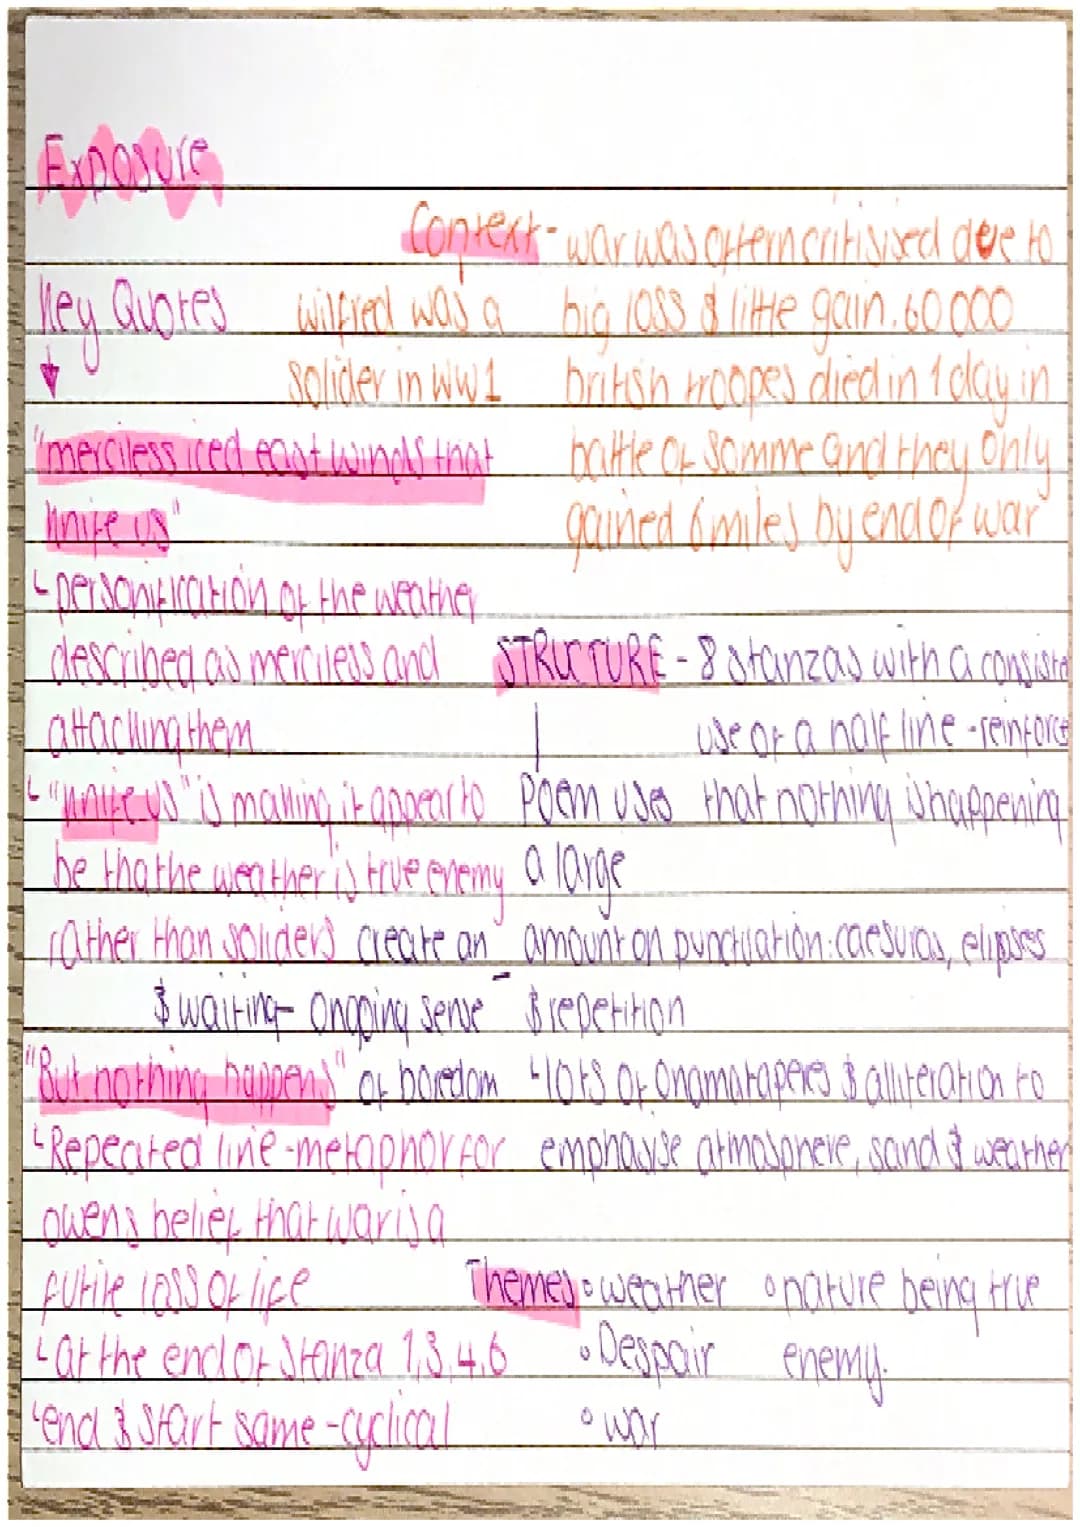 Exposure
Context - war was oftern critisised due to
Key Quotes
wilfred was a
solider in WW1
big loss & little gain. 60 000
british troopes died in 1 day in
battle of Somme and they only
gained 6 miles by end of war
"merciless iced east winds that
knife us"
↳ personification of the weather
described as merciless and
attacking them
↳ "knife us" is making it appear to
be tha the weather is true enemy
rather than soliders
STRUCTURE - 8 stanzas with a consiste
use of a half line - reinforce
that nothing is happening
Poem uses
a large
amount on punctuation: caesuras, elipses
& repetition
create an
ongoing sense
of boredom
& waiting
↳ lots of onamataperes & alliteration to
emphasise atmosphere, sand & weather
"But nothing happens"
↳ Repeated line - metaphor for
owens belief that war is a
futile loss of life
↳ at the end of stanza 1,3,4,6
↳ end & start same - cyclical
Themes
◦ weather
◦ Despair
◦ war
◦ nature being true
enemy.